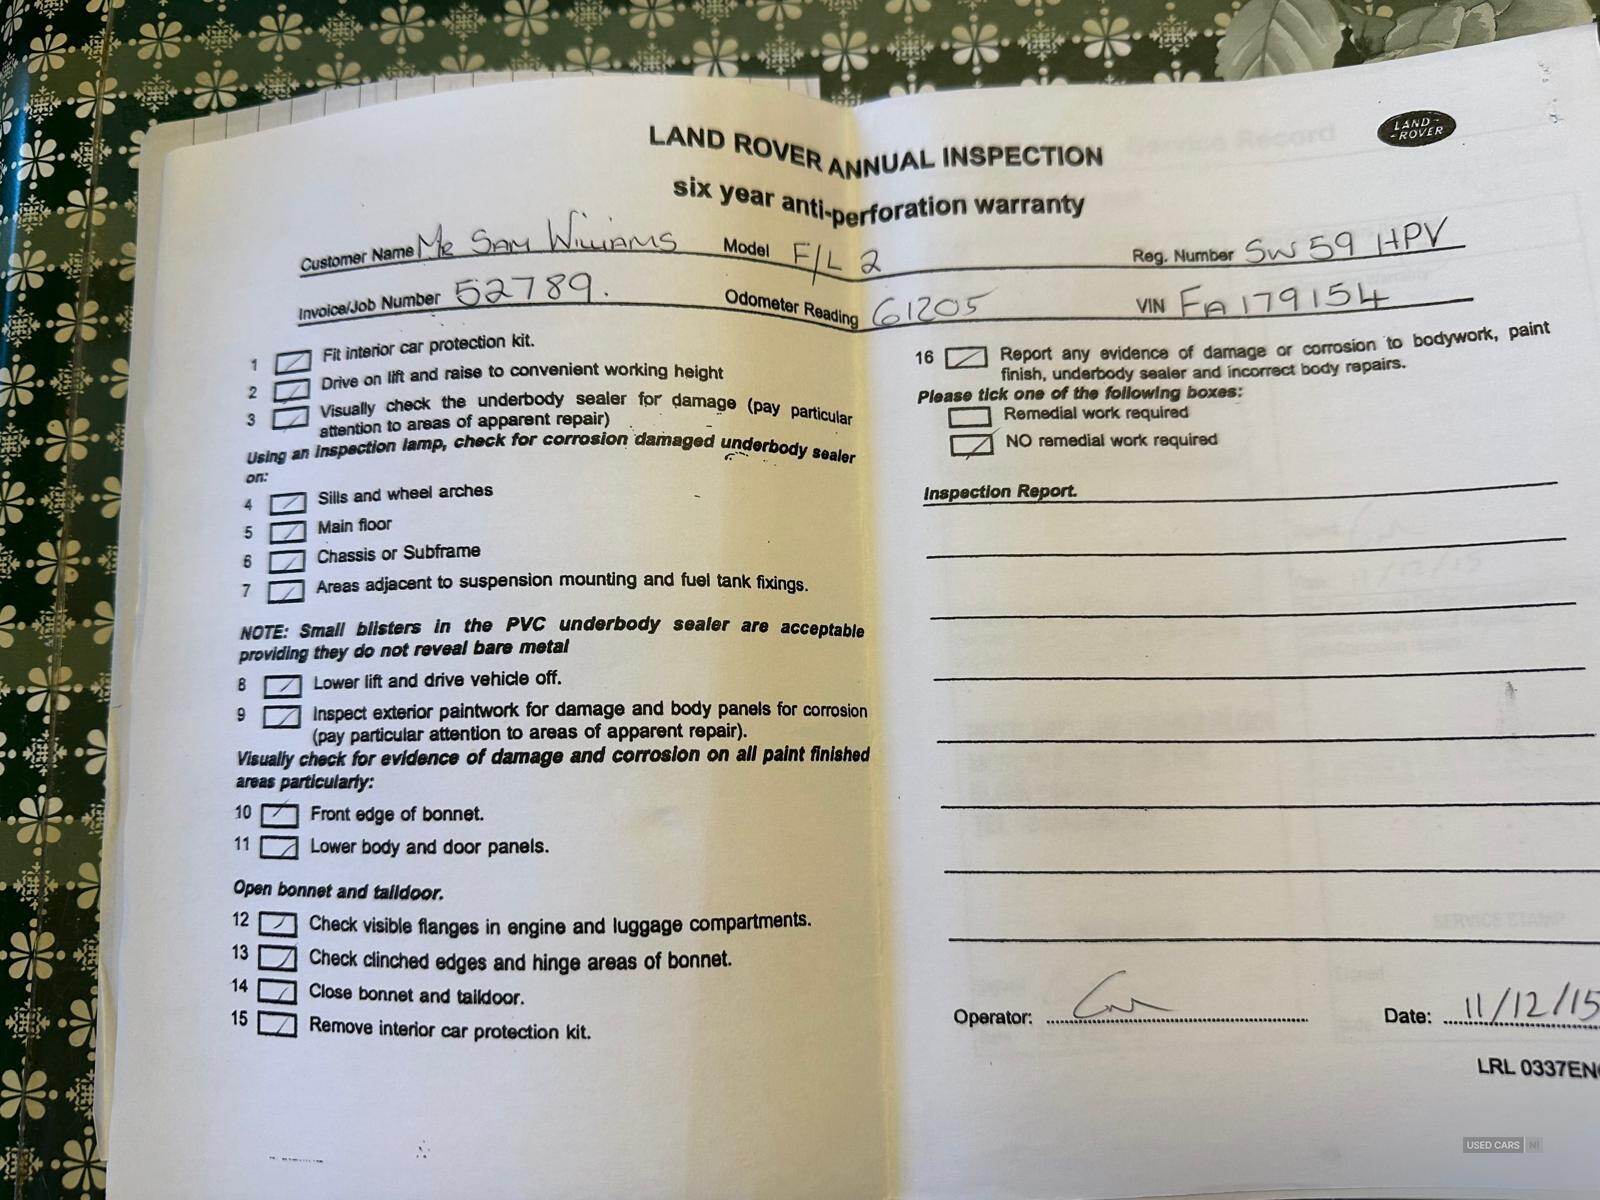 LAND ROVER
LAND ROVER ANNUAL INSPECTION
six year anti-perforation warranty
Customer Name Mr SAM WILLIAMS Model F/L 2 Reg. Number SW59 HPV
Invoice/Job Number 52789. Odometer Reading 61205 VIN FA179154
1 Fit interior car protection kit.
2 Drive on lift and raise to convenient working height
3 Visually check the underbody sealer for damage (pay particular
attention to areas of apparent repair)
Using an inspection lamp, check for corrosion damaged underbody sealer
on:
4 Sills and wheel arches
5 Main floor
6 Chassis or Subframe
7 Areas adjacent to suspension mounting and fuel tank fixings.
NOTE: Small blisters in the PVC underbody sealer are acceptable
providing they do not reveal bare metal
8 Lower lift and drive vehicle off.
9 Inspect exterior paintwork for damage and body panels for corrosion
(pay particular attention to areas of apparent repair).
Visually check for evidence of damage and corrosion on all paint finished
areas particularly:
10 Front edge of bonnet.
11 Lower body and door panels.
Open bonnet and taildoor.
12 Check visible flanges in engine and luggage compartments.
13 Check clinched edges and hinge areas of bonnet.
14 Close bonnet and taildoor.
15 Remove interior car protection kit.
16 Report any evidence of damage or corrosion to bodywork, paint
finish, underbody sealer and incorrect body repairs.
Please tick one of the following boxes:
Remedial work required
NO remedial work required
Inspection Report.
Operator: Date: 11/12/15
LRL 0337EN
USED CARS NI